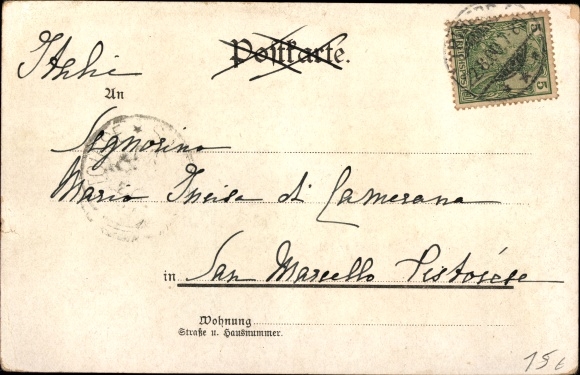 Postkarte.
Italie
An
Signorino
Mario Incisa di Camerana
in San Marcello Pistoiese
Wohnung
Straße u. Hausnummer.
5
5
15 €